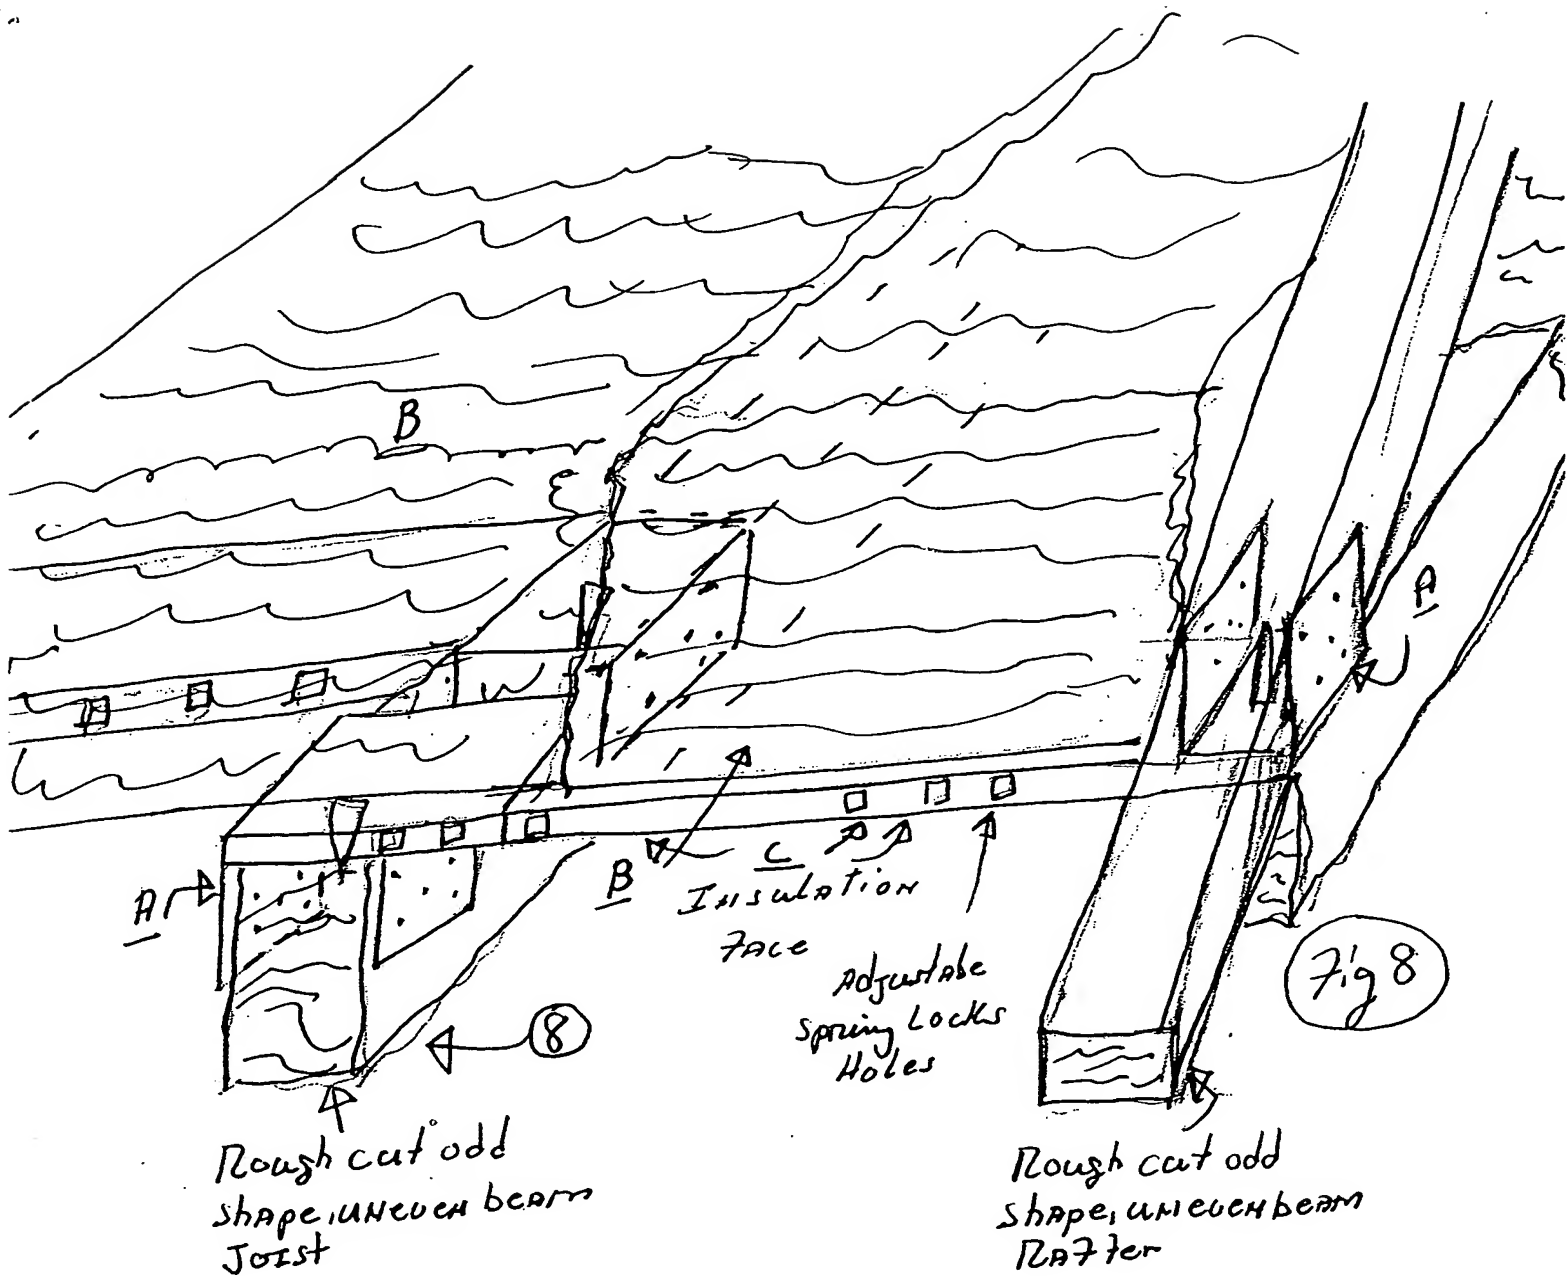 B
A
A
B
C
Insulation
Face
Adjustabe
Spring Locks
Holes
Fig 8
8
Rough cut odd
shape, uneven beam
Joist
Rough cut odd
shape, uneven beam
Rafter